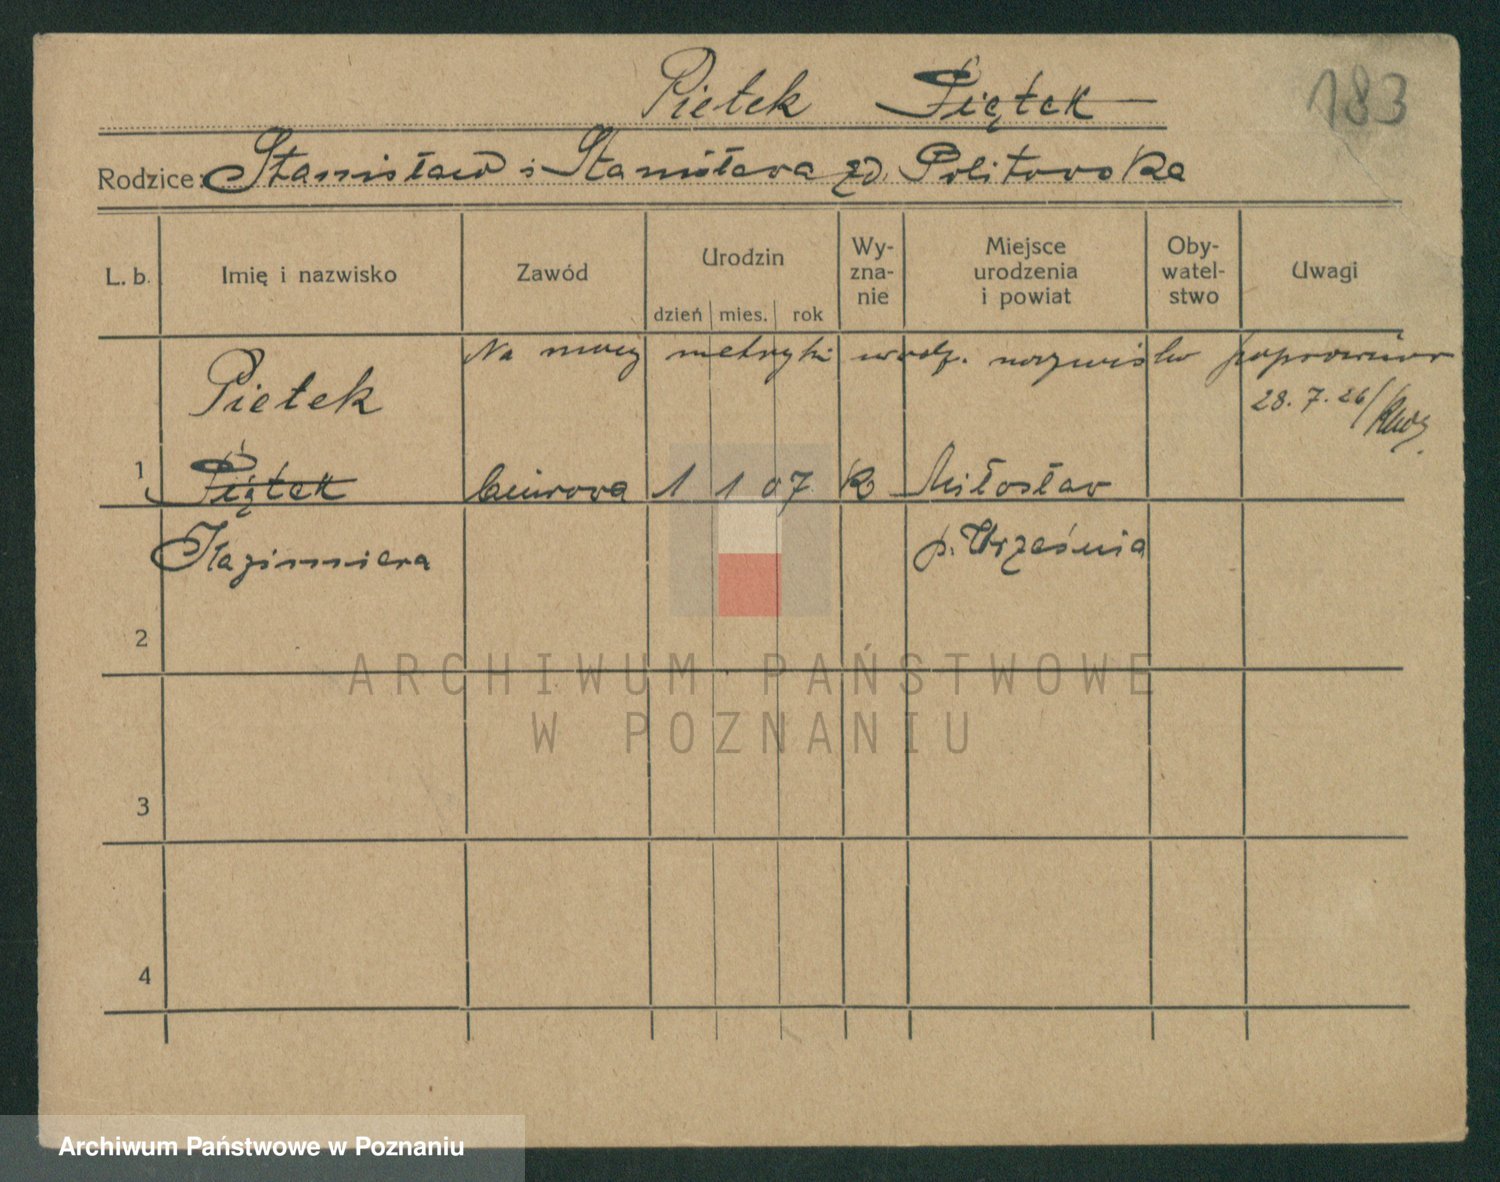 Pietek Piątek 183
Rodzice: Stanisław i Stanisława zd. Politowska
L. b. Imię i nazwisko Zawód Urodzin Wy- Miejsce Oby- Uwagi
zna- urodzenia watel-
dzień mies. rok nie i powiat stwo
Na mocy metryki urodz. nazwisko poprawiono
Pietek 28. 7. 26
1 Piątek biurowa 1 1 07 k Miłosław
Kazimiera p. Września
2
3
4
ARCHIWUM PAŃSTWOWE
W POZNANIU
Archiwum Państwowe w Poznaniu